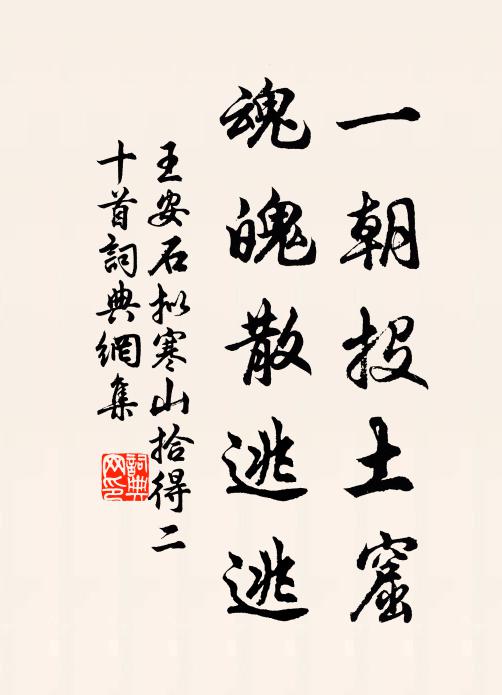 一朝投土窟
魂魄散逃逃
王安石拟寒山拾得二
十首詞典網集
詞典网印